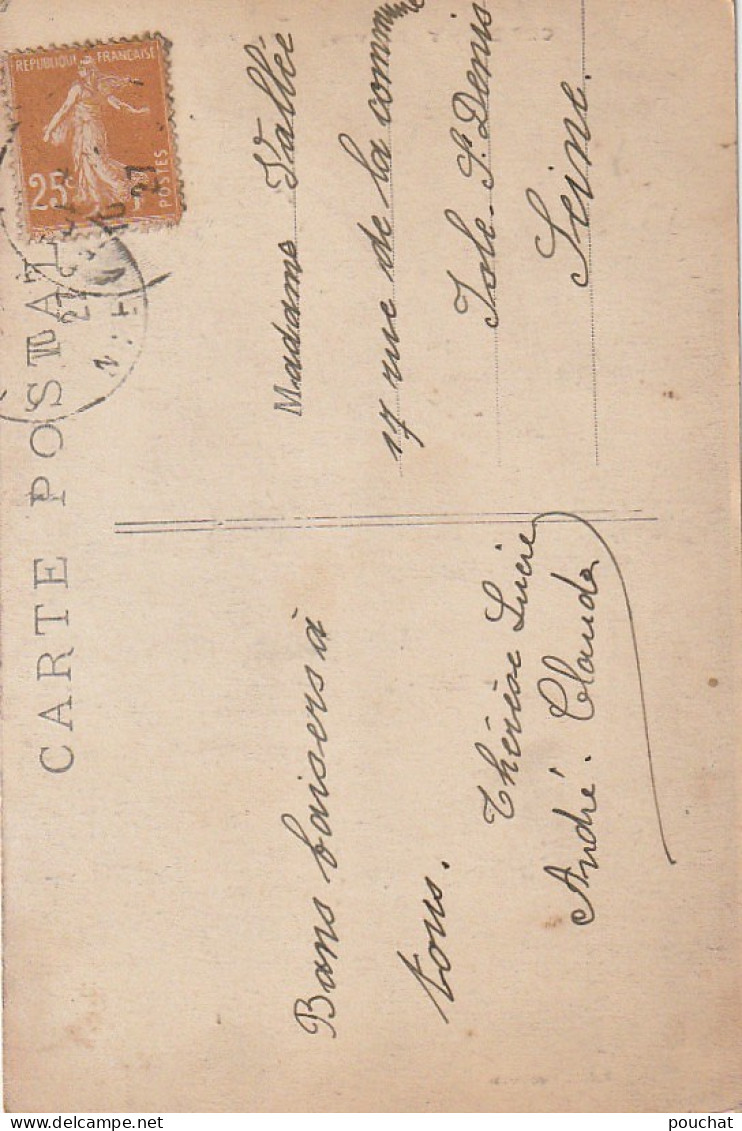 CARTE POSTALE
REPUBLIQUE FRANÇAISE
25c
POSTES
Bons baisers à
tous.
Thérèse Lucie
André. Claude
Madame Vallée
17 rue de la commune
Isle. St. Denis
Seine.
pouchat